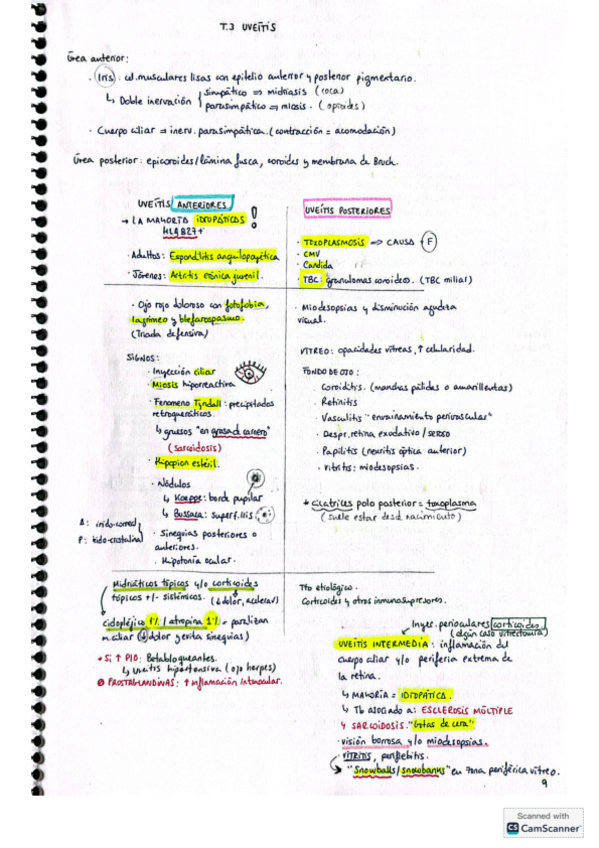 T.3 UVEÍTIS
Úvea anterior:
· Iris: cel. musculares lisas con epitelio anterior y posterior pigmentario.
↳ Doble inervación { simpático ⇒ midriasis (coca)
parasimpático ⇒ miosis. (opioides)
· Cuerpo ciliar ⇒ inerv. parasimpática. (contracción = acomodación)
Úvea posterior: epicoroides/lámina fusca, coroides y membrana de Bruch.
UVEÍTIS ANTERIORES
→ LA MAYORÍA IDIOPÁTICAS !
HLA B27+
· Adultos: Espondilitis angulopoyética
· Jóvenes: Artritis crónica juvenil.
· Ojo rojo doloroso con fotofobia,
lagrimeo y blefarospasmo.
(Triada defensiva)
SIGNOS:
· Inyección ciliar
· Miosis hiporreactiva
· Fenomeno Tyndall: precipitados
retroqueráticos.
↳ gruesos "en grasa de carnero"
(sarcoidosis)
· Hipopion estéril.
· Nódulos
↳ Koeppe: borde pupilar
↳ Bussaca: superf. iris
A: irido-corneal
P: irido-cristalina
· Sinequias posteriores o
anteriores.
· Hipotonía ocular.
Midriáticos tópicos y/o corticoides
tópicos +/- sistémicos. (↓dolor, aceleran)
Ciclopléjico 1% / atropina 1% = paralizan
m. ciliar (↓dolor y evita sinequias)
* Si ↑ PIO: Betabloqueantes.
↳ Uveítis hipertensiva (ojo herpes)
PROSTAGLANDINAS: ↑ inflamación intraocular.
UVEÍTIS POSTERIORES
· TOXOPLASMOSIS ⇒ CAUSA + F
· CMV
· Candida
· TBC: granulomas coroideos. (TBC miliar)
· Miodesopsias y disminución agudeza
visual.
VÍTREO: opacidades vítreas, ↑ celularidad.
FONDO DE OJO:
· Coroiditis. (manchas pálidas o amarillentas)
· Retinitis
· Vasculitis "envainamiento perivascular"
· Despr. retina exudativo / seroso
· Papilitis (neuritis óptica anterior)
· Vitritis: miodesopsias.
* cicatrices polo posterior = toxoplasma
(suele estar desd. nacimiento)
Tto etiológico.
Corticoides y otros inmunosupresores.
Inyec. perioculares corticoides
(algún caso vitrectomía)
UVEÍTIS INTERMEDIA: inflamación del
cuerpo ciliar y/o periferia extrema de
la retina.
↳ MAYORÍA = IDIOPÁTICA.
↳ Tb asociado a: ESCLEROSIS MÚLTIPLE
↳ SARCOIDOSIS. "Gotas de cera"
· visión borrosa y/o miodesopsias.
· VITRITIS, periflebitis.
→ "Snowballs/snowbanks" en zona periférica vítreo.
9
Scanned with
CS CamScanner